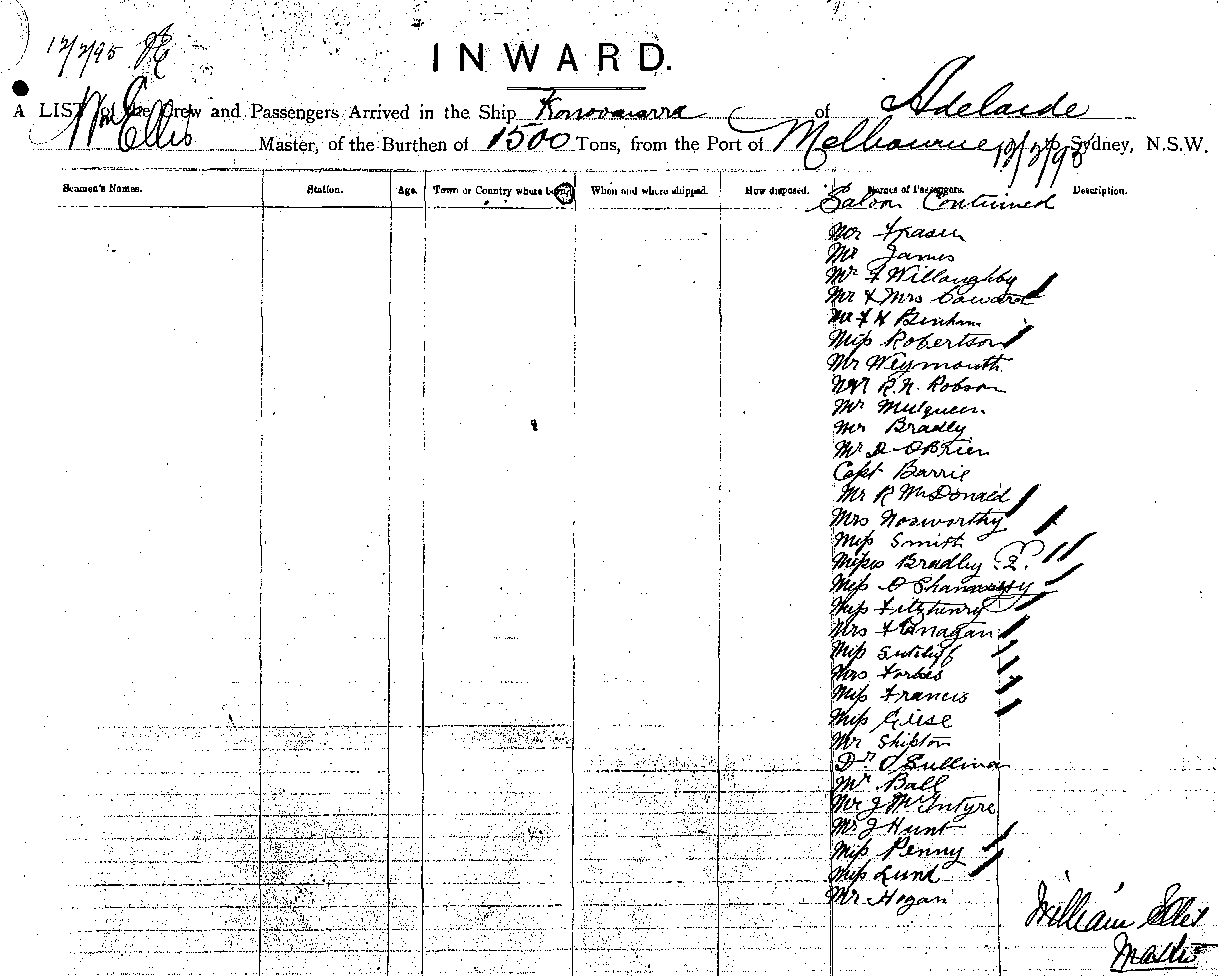 12/2/95
INWARD.
A LIST of the Crew and Passengers Arrived in the Ship Konoowarra of Adelaide
Wm Ellis Master, of the Burthen of 1500 Tons, from the Port of Melbourne 12/2/95 Sydney, N.S.W.
Seamen's Names. Station. Age. Town or Country where born. When and where shipped. How disposed. Names of Passengers. Description.
Saloon Continued
Mr Fraser
Mr James
Mr F Willoughby
Mr & Mrs Coward
Mr F H Benham
Miss Robertson
Mr Weymouth
Mr R. N. Robson
Mr Mulqueen
Mr Bradly
Mr D O'Brien
Capt Barrie
Mr R McDonald
Mrs Nosworthy
Miss Smith
Misses Bradley 2.
Miss O Shannassy
Miss Fitzhenry
Mrs Finagan
Miss Sutcliff
Mrs Forbes
Miss Francis
Miss Giese
Mr Shipton
Dr O'Sullivan
Mr Ball
Mr J McIntyre
Mr J Hunt
Miss Penny
Miss Lund
Mr Hogan
William Ellis
Master